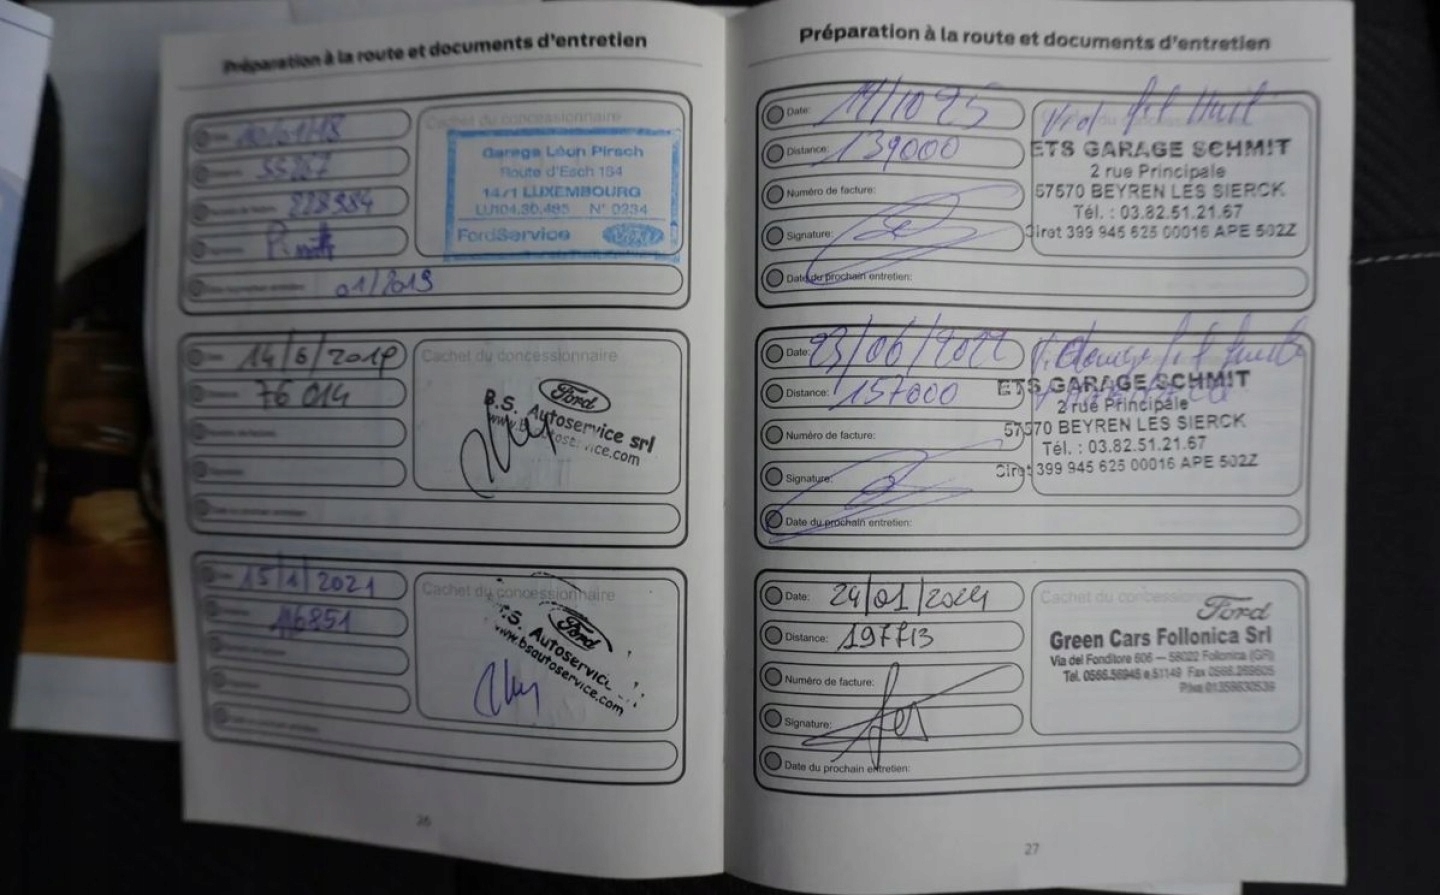 Préparation à la route et documents d'entretien
55267
228984
01/2019
Cachet du concessionnaire
Garage Léon Pirsch
Route d'Esch 154
1471 LUXEMBOURG
N° 0234
FordService
Ford
14/6/2019
76 014
Cachet du concessionnaire
Ford
B.S. Autoservice srl
www.bsautoservice.com
15/1/2021
116851
Cachet du concessionnaire
Ford
.S. Autoservice
www.bsautoservice.com
26
Préparation à la route et documents d'entretien
Date:
Distance: 139000
Numéro de facture:
Signature:
Date du prochain entretien:
ETS GARAGE SCHMIT
2 rue Principale
57570 BEYREN LES SIERCK
Tél. : 03.82.51.21.67
Siret 399 945 625 00016 APE 502Z
Date: 23/06/2022
Distance: 157000
Numéro de facture:
Signature:
Date du prochain entretien:
ETS GARAGE SCHMIT
2 rue Principale
57570 BEYREN LES SIERCK
Tél. : 03.82.51.21.67
Siret 399 945 625 00016 APE 502Z
Date: 24/01/2024
Distance: 197713
Numéro de facture:
Signature:
Date du prochain entretien:
Cachet du concessionnaire
Ford
Green Cars Follonica Srl
Via del Fonditore 606 — 58022 Follonica (GR)
Tel. 0566.56948 e 51149 Fax 0566.269605
P.iva 01359630539
27